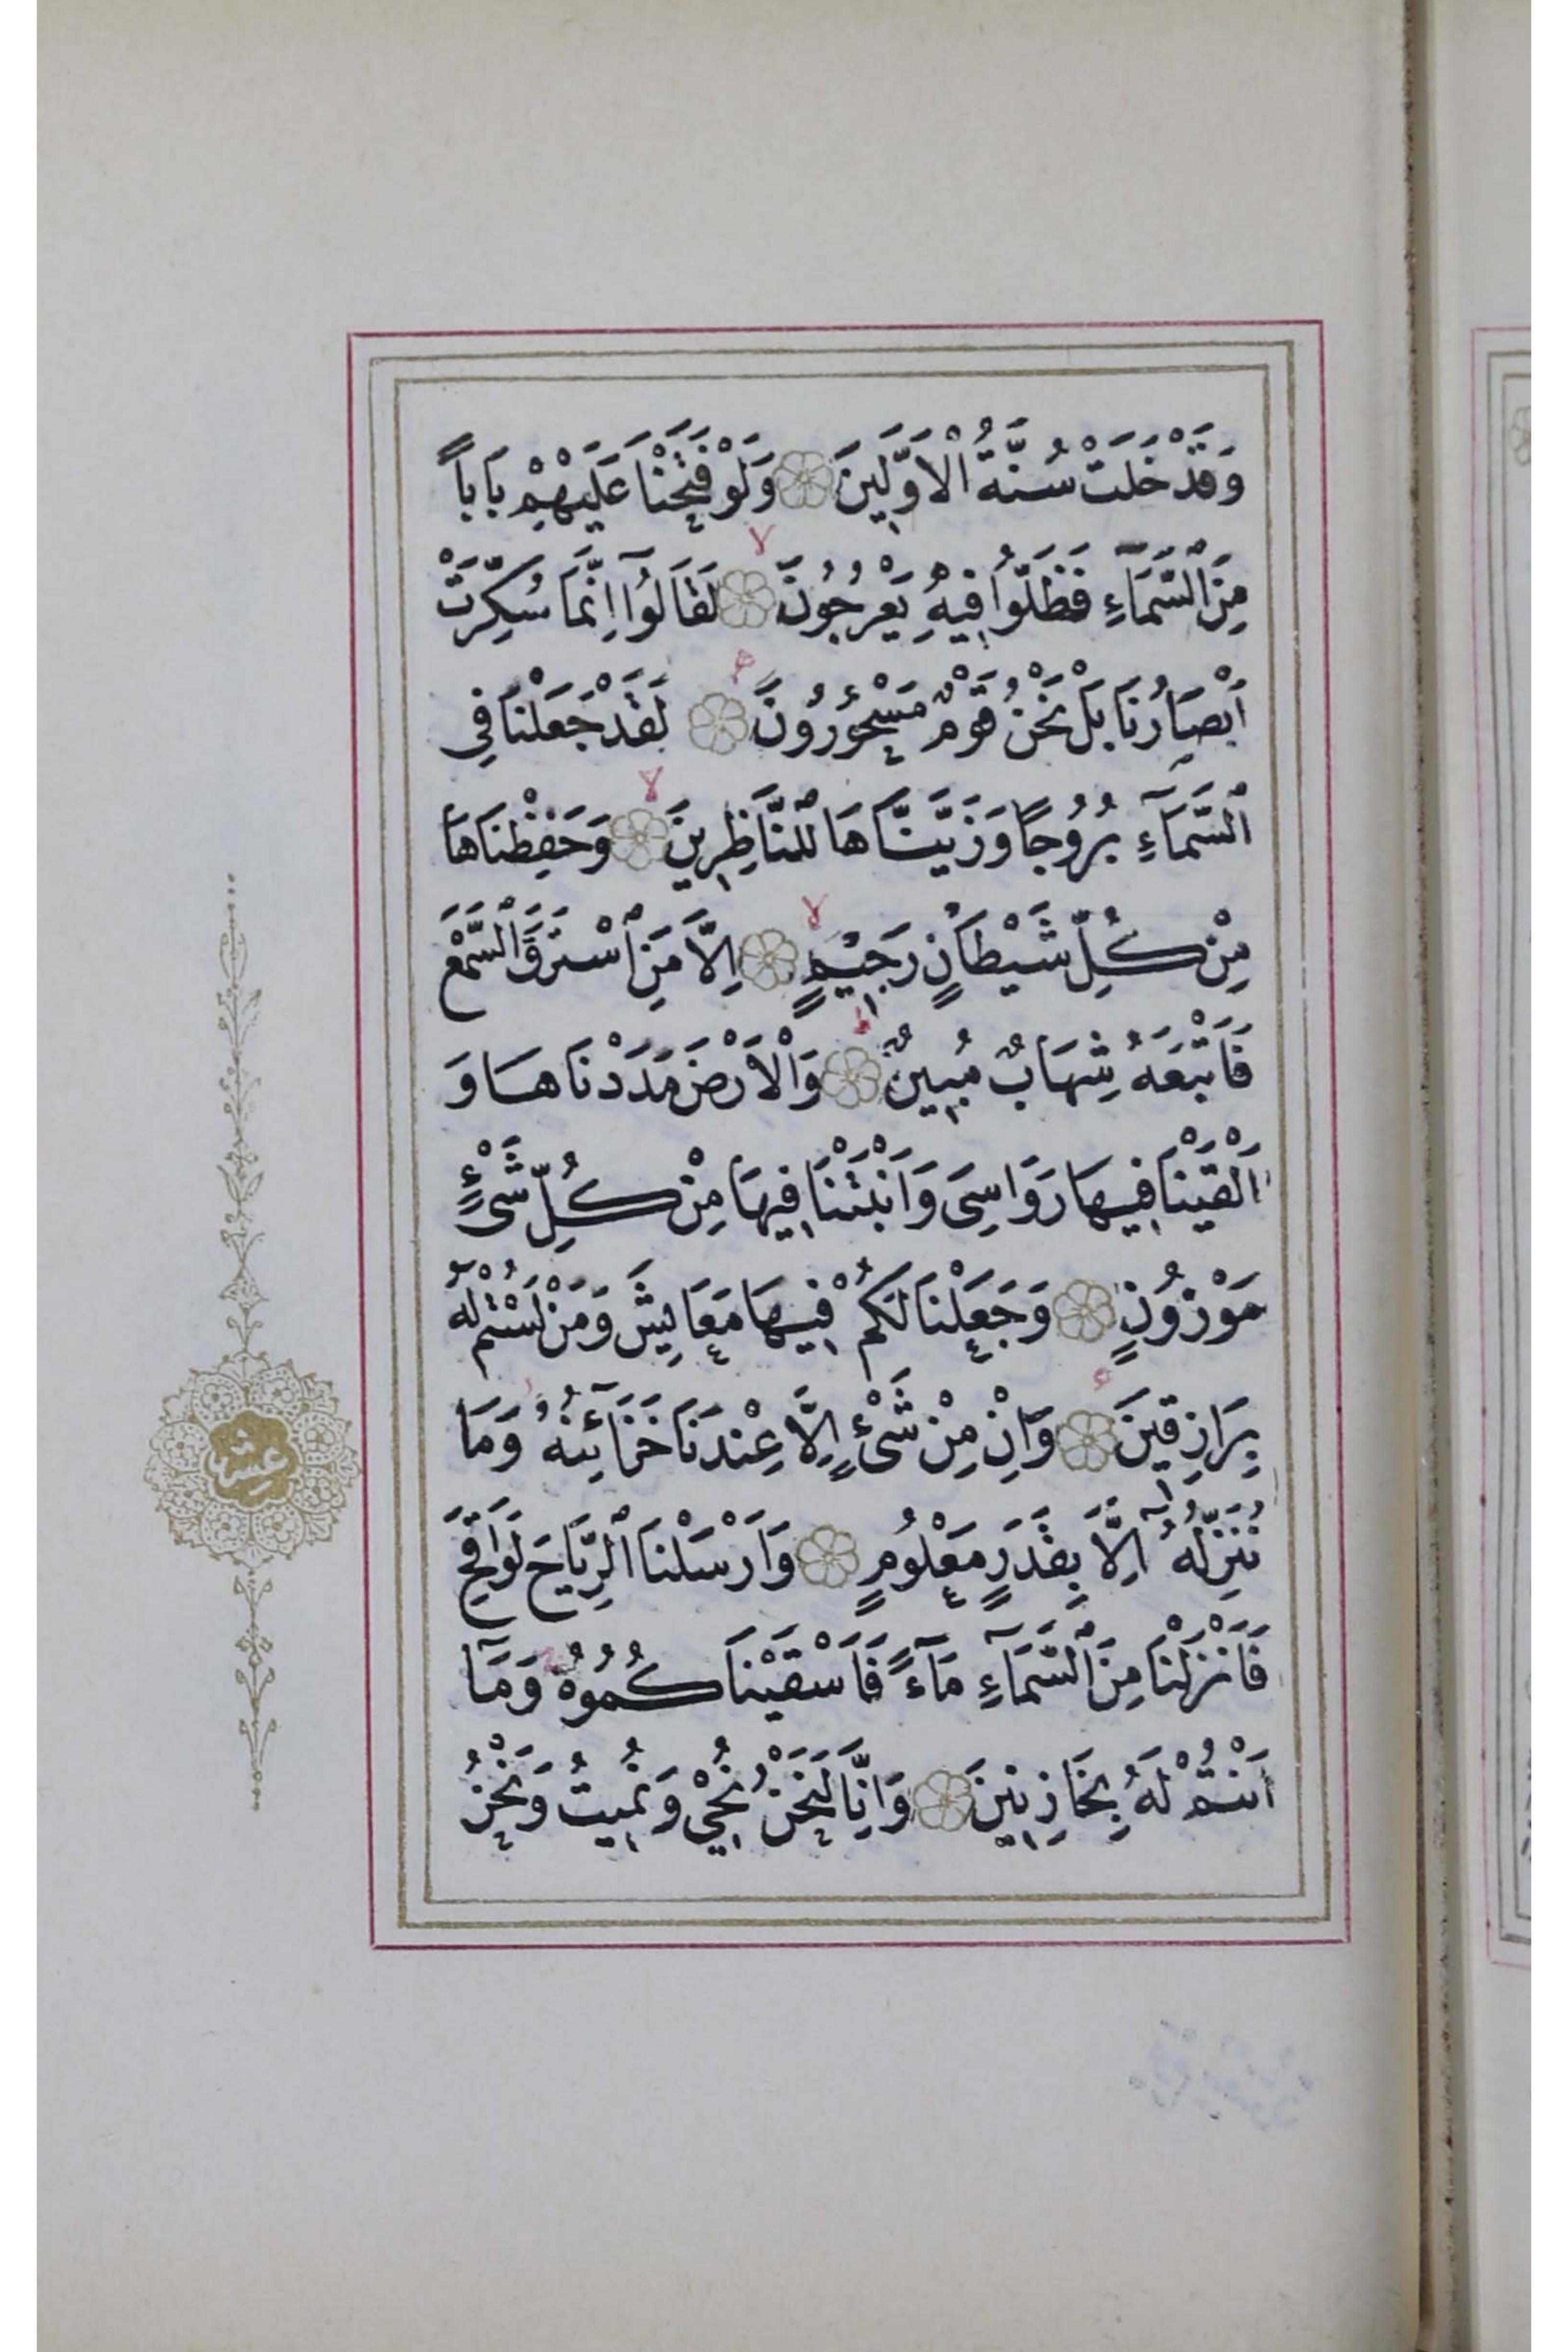 وَقَدْ خَلَتْ سُنَّةُ الْاَوَّلِينَ وَلَوْ فَتَحْنَا عَلَيْهِمْ بَاباً
مِنَ السَّمَآءِ فَظَلُّوا فِيهِ يَعْرُجُونَ لَقَالُوٓا اِنَّمَا سُكِّرَتْ
اَبْصَارُنَا بَلْ نَحْنُ قَوْمٌ مَسْحُورُونَ لَقَدْ جَعَلْنَا فِى
السَّمَآءِ بُرُوجًا وَزَيَّنَّاهَا لِلنَّاظِرِينَ وَحَفِظْنَاهَا
مِنْ كُلِّ شَيْطَانٍ رَجِيمٍ اِلَّا مَنِ اسْتَرَقَ السَّمْعَ
فَاَتْبَعَهُ شِهَابٌ مُبِينٌ وَالْاَرْضَ مَدَدْنَاهَا وَ
اَلْقَيْنَا فِيهَا رَوَاسِىَ وَاَنْبَتْنَا فِيهَا مِنْ كُلِّ شَىْءٍ
مَوْزُونٍ وَجَعَلْنَا لَكُمْ فِيهَا مَعَايِشَ وَمَنْ لَسْتُمْ لَهُ
بِرَازِقِينَ وَاِنْ مِنْ شَىْءٍ اِلَّا عِنْدَنَا خَزَآئِنُهُ وَمَا
نُنَزِّلُهُٓ اِلَّا بِقَدَرٍ مَعْلُومٍ وَاَرْسَلْنَا الرِّيَاحَ لَوَاقِحَ
فَاَنْزَلْنَا مِنَ السَّمَآءِ مَآءً فَاَسْقَيْنَاكُمُوهُ وَمَآ
اَنْتُمْ لَهُ بِخَازِنِينَ وَاِنَّا لَنَحْنُ نُحْيِى وَنُمِيتُ وَنَحْنُ
عشر